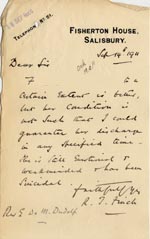 TELEPHONE
FISHERTON HOUSE,
SALISBURY.
Sep 14th 1911
Dear Sir
to a
certain extent is better,
but her condition is
not such that I could
guarantee her discharge
in any specified time.
She is still Emotional &
weakminded & has been
Suicidal.
faithfully yrs
R. T. Finch
Rev E. de M. Rudolf